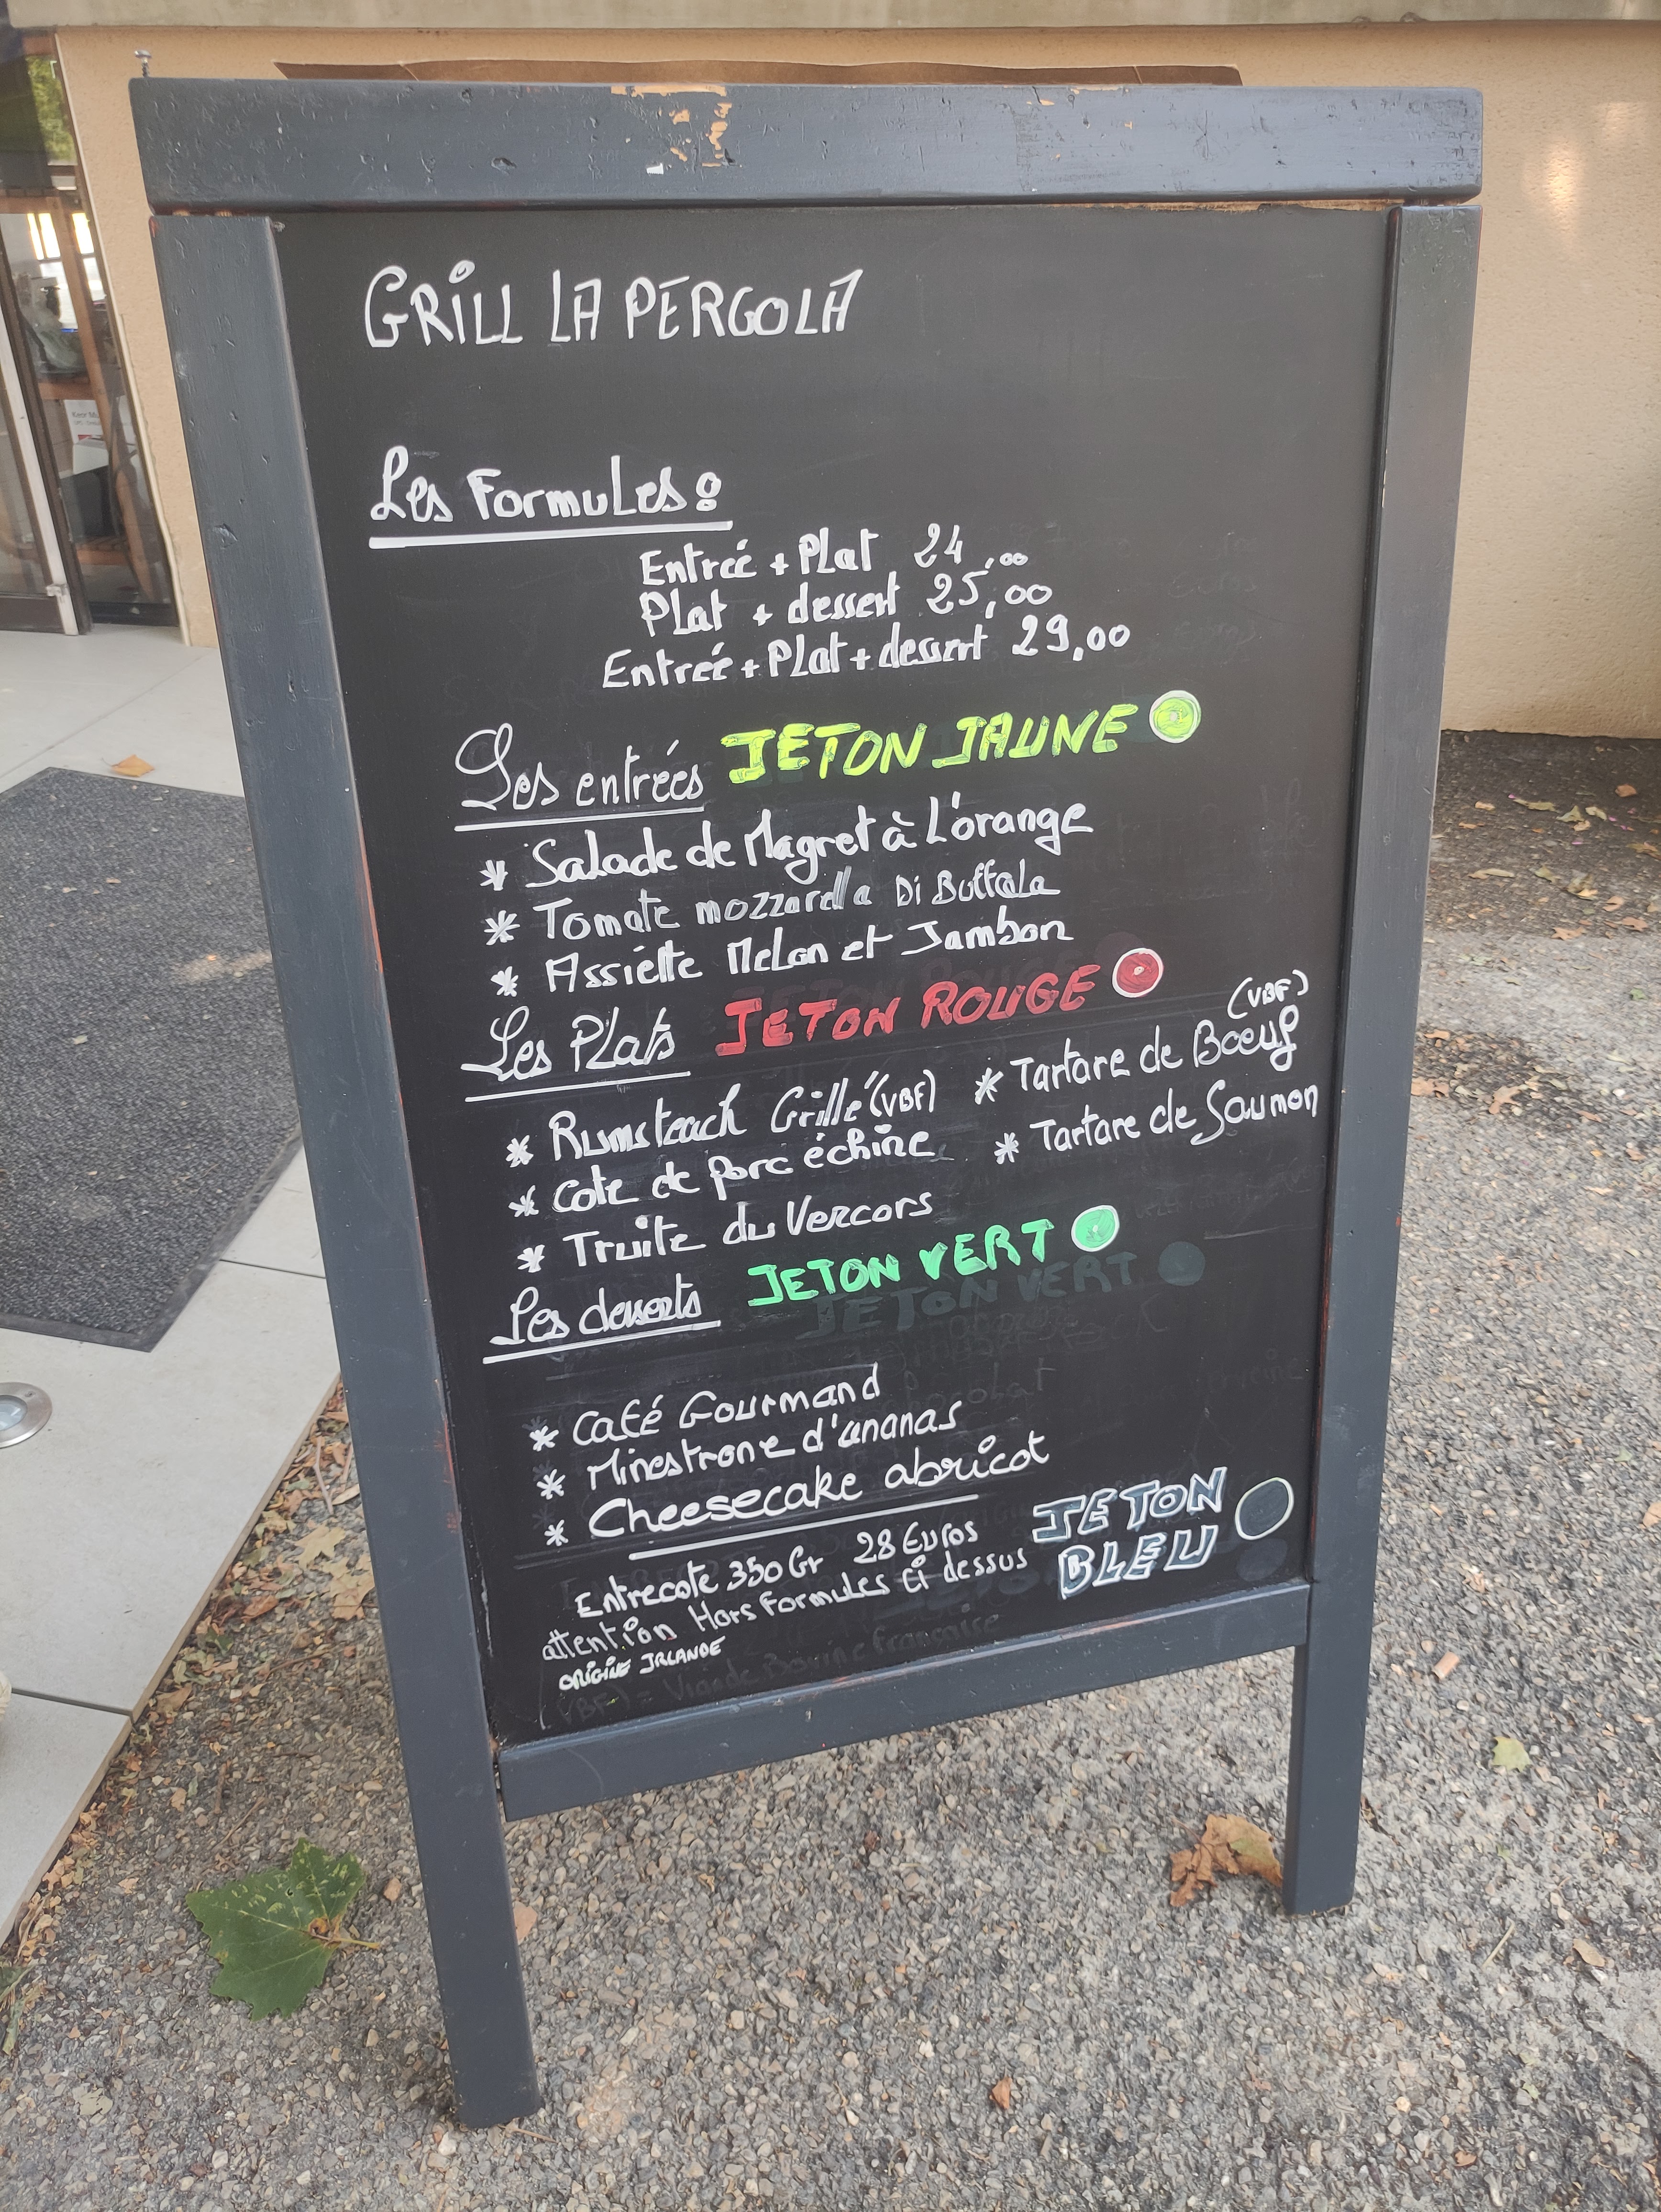 GRILL LA PERGOLA
Les Formules :
Entrée + Plat 24,00
Plat + dessert 25,00
Entrée + Plat + dessert 29,00
Les entrées JETON JAUNE
* Salade de Magret à L'orange
* Tomate mozzarella Di Buffala
* Assiette Melon et Jambon
Les Plats JETON ROUGE
* Rumsteack Grillé (VBF)
* Cote de porc échine
* Truite du Vercors
* Tartare de Boeuf (VBF)
* Tartare de Saumon
Les desserts JETON VERT
JETON VERT
* Café Gourmand
* Minestrone d'ananas
* Cheesecake abricot
Entrecote 350 Gr 28 Euros
attention Hors Formules Ci dessus
ORIGINE IRLANDE
JETON
BLEU
(VBF) = Viande Bovine française